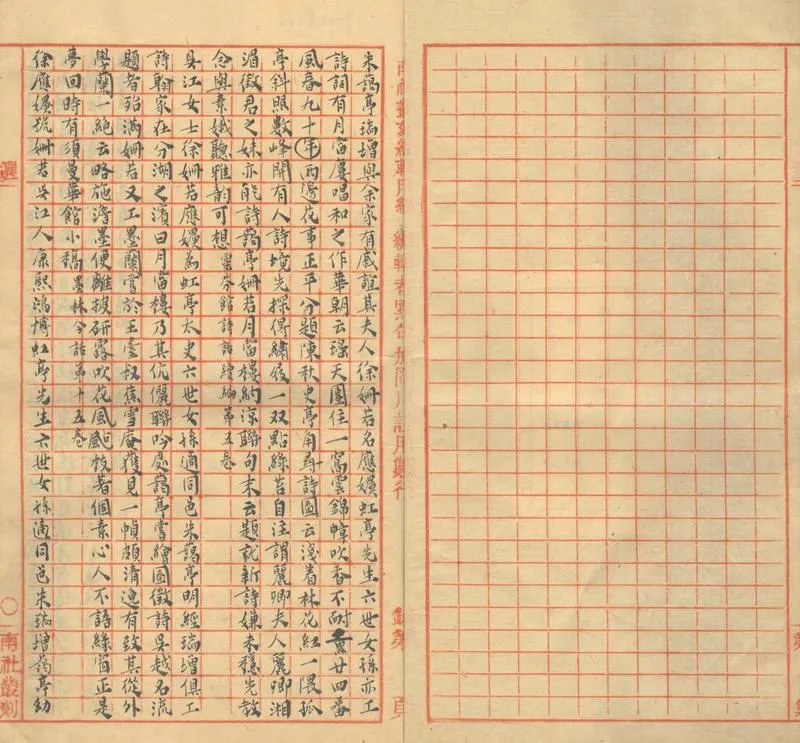 朱藹亭瑞增與余家有戚誼其夫人徐姍若名應嬽虹亭先生六世女孫亦工
詩詞有月窗慶唱和之作華朝云瑤天團住一窩雲錦幛吹香不耐熏廿四番
風春九十年雨邊花事正平分題陳秋史亭角尋詩圖云淺春林花紅一隈孤
亭斜照數峰開有人詩境先探得繡屐一双點綠苔自注謂麗卿夫人麗卿湘
湄徵君之妹亦能詩藹亭姍若月窗樓納涼聯句末云題就新詩嫌未穩先教
念與素娥聽雅韵可想靈芬館詩話續編第五卷
吳江女士徐姍若應嬽為虹亭太史六世女孫適同邑朱藹亭明經瑞增俱工
詩翰家在分湖之濱曰月窗樓乃其伉儷聯吟處藹亭嘗繪圖徵詩吳越名流
題者殆滿姍若又工墨蘭嘗於王壹叔蕉雪庵獲見一幀頗清逸有致其從外
學蘭一絕云略施澹墨便離披研露吹花風颭枝著個素心人不語綠窗正是
夢回時有須曼華館小稿墨林今話第十五卷
徐應嬽號姍若吳江人康熙鴻博虹亭先生六世女孫適同邑朱瑞增藹亭幼
選
○
南社叢刻
頁